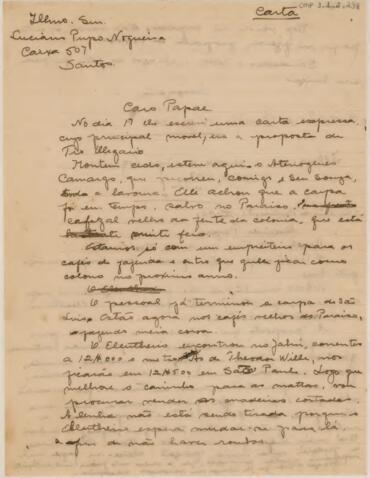 Carta
CMP 3.
Illmo. Snr.
Luciano Pupo Nogueira
Caixa 507
Santos.
Caro Papae
No dia 17 lhe escrevi uma carta expressa,
cujo principal movel, era a proposta do
Tio Olegario
Hontem cedo, esteve aqui o Athenogenes
Camargo, que percorreu, comigo e Seu Souza,
toda a lavoura. Elle achou que a carpa
foi em tempo, salvo no Paraiso,
cafezal velho da frente da colonia, que está
muito feio.
Estamos só com um empreiteiro para os
cafés da fazenda e este que quer ficar como
colono no proximo anno.
O
O pessoal já terminou a carpa de São
Luiz e estão agora nos cafés velhos do Paraiso,
fazendo meia cova.
O Eleutherio encontrou no Jahú, correntes
a 12#000 e metro. As de Theodor Wille, nos
ficarão em 12#500 em São Paulo. Logo que
melhore o caminho para as mattas, vou
procurar vender as madeiras cortadas.
A lenha não está sendo tirada porque o
Eleutherio espera mudar-se para lá
afim de não haver roubos.